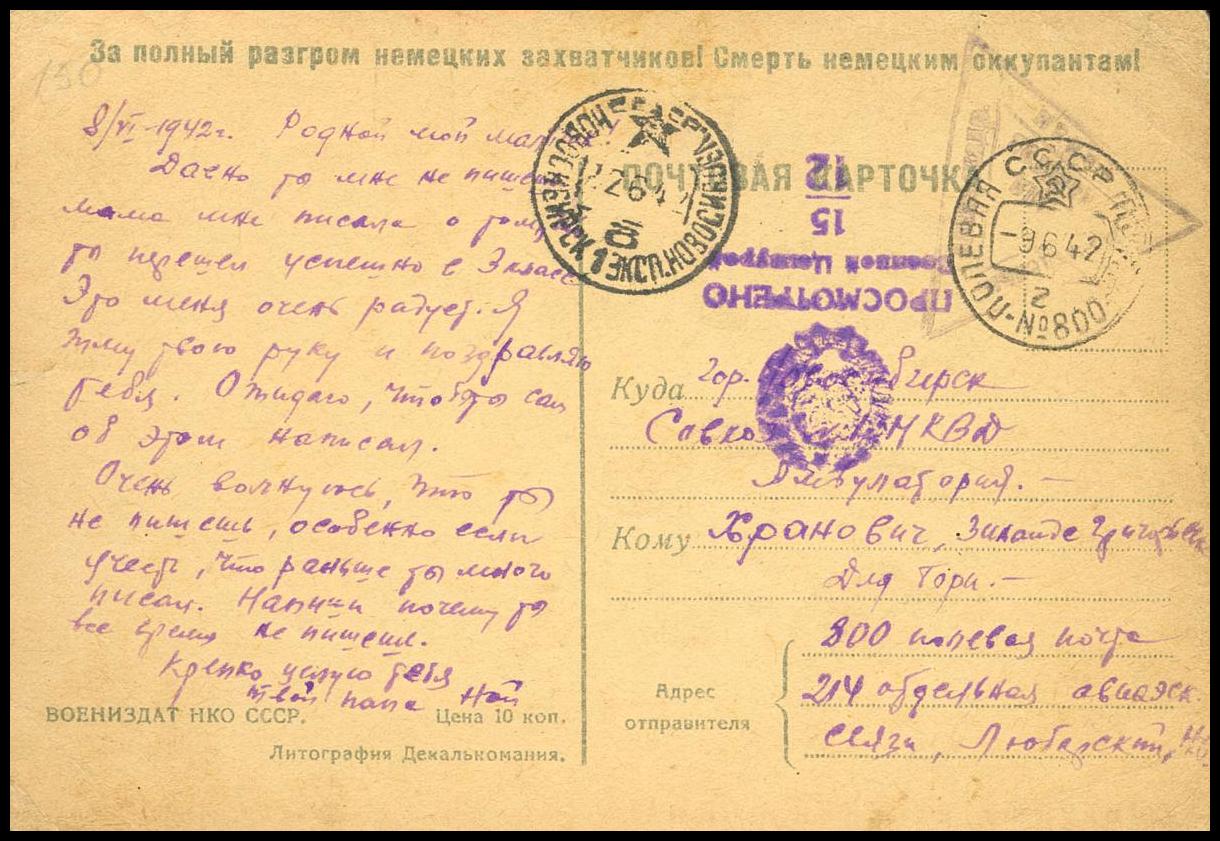 За полный разгром немецких захватчиков! Смерть немецким оккупантам!
150
8/VI-1942г. Родной мой
Давно ты мне не пишешь
мама мне писала о том
ты перешел успешно с 3 класса
Это меня очень радует. Я
жму твою руку и поздравляю
тебя. Ожидаю, чтобы ты сам
об этом написал.
Очень волнуюсь, что ты
не пишешь, особенно если
учесть, что раньше ты много
писал. Напиши почему ты
все время не пишешь.
Крепко целую тебя
твой папа Ной
ВОЕНИЗДАТ НКО СССР. Цена 10 коп.
Литография Декалькомания.
ПОЧТОВАЯ КАРТОЧКА
НОВОСИБИРСК 1 ЭКСП. НОВОСИБИРСК
12 6 42
10
12
15
Военной Цензурой
ПРОСМОТРЕНО
СССР
ПОЛЕВАЯ
-9 6 42
2
№ 800
Куда гор. Новосибирск
НКВД
Амбулатория.-
Кому Хранович, Зинаиде Григорьевне
Для Гори.-
Адрес отправителя
800 полевая почта
214 отдельная авиаэск.
связи, Любарский, Н.